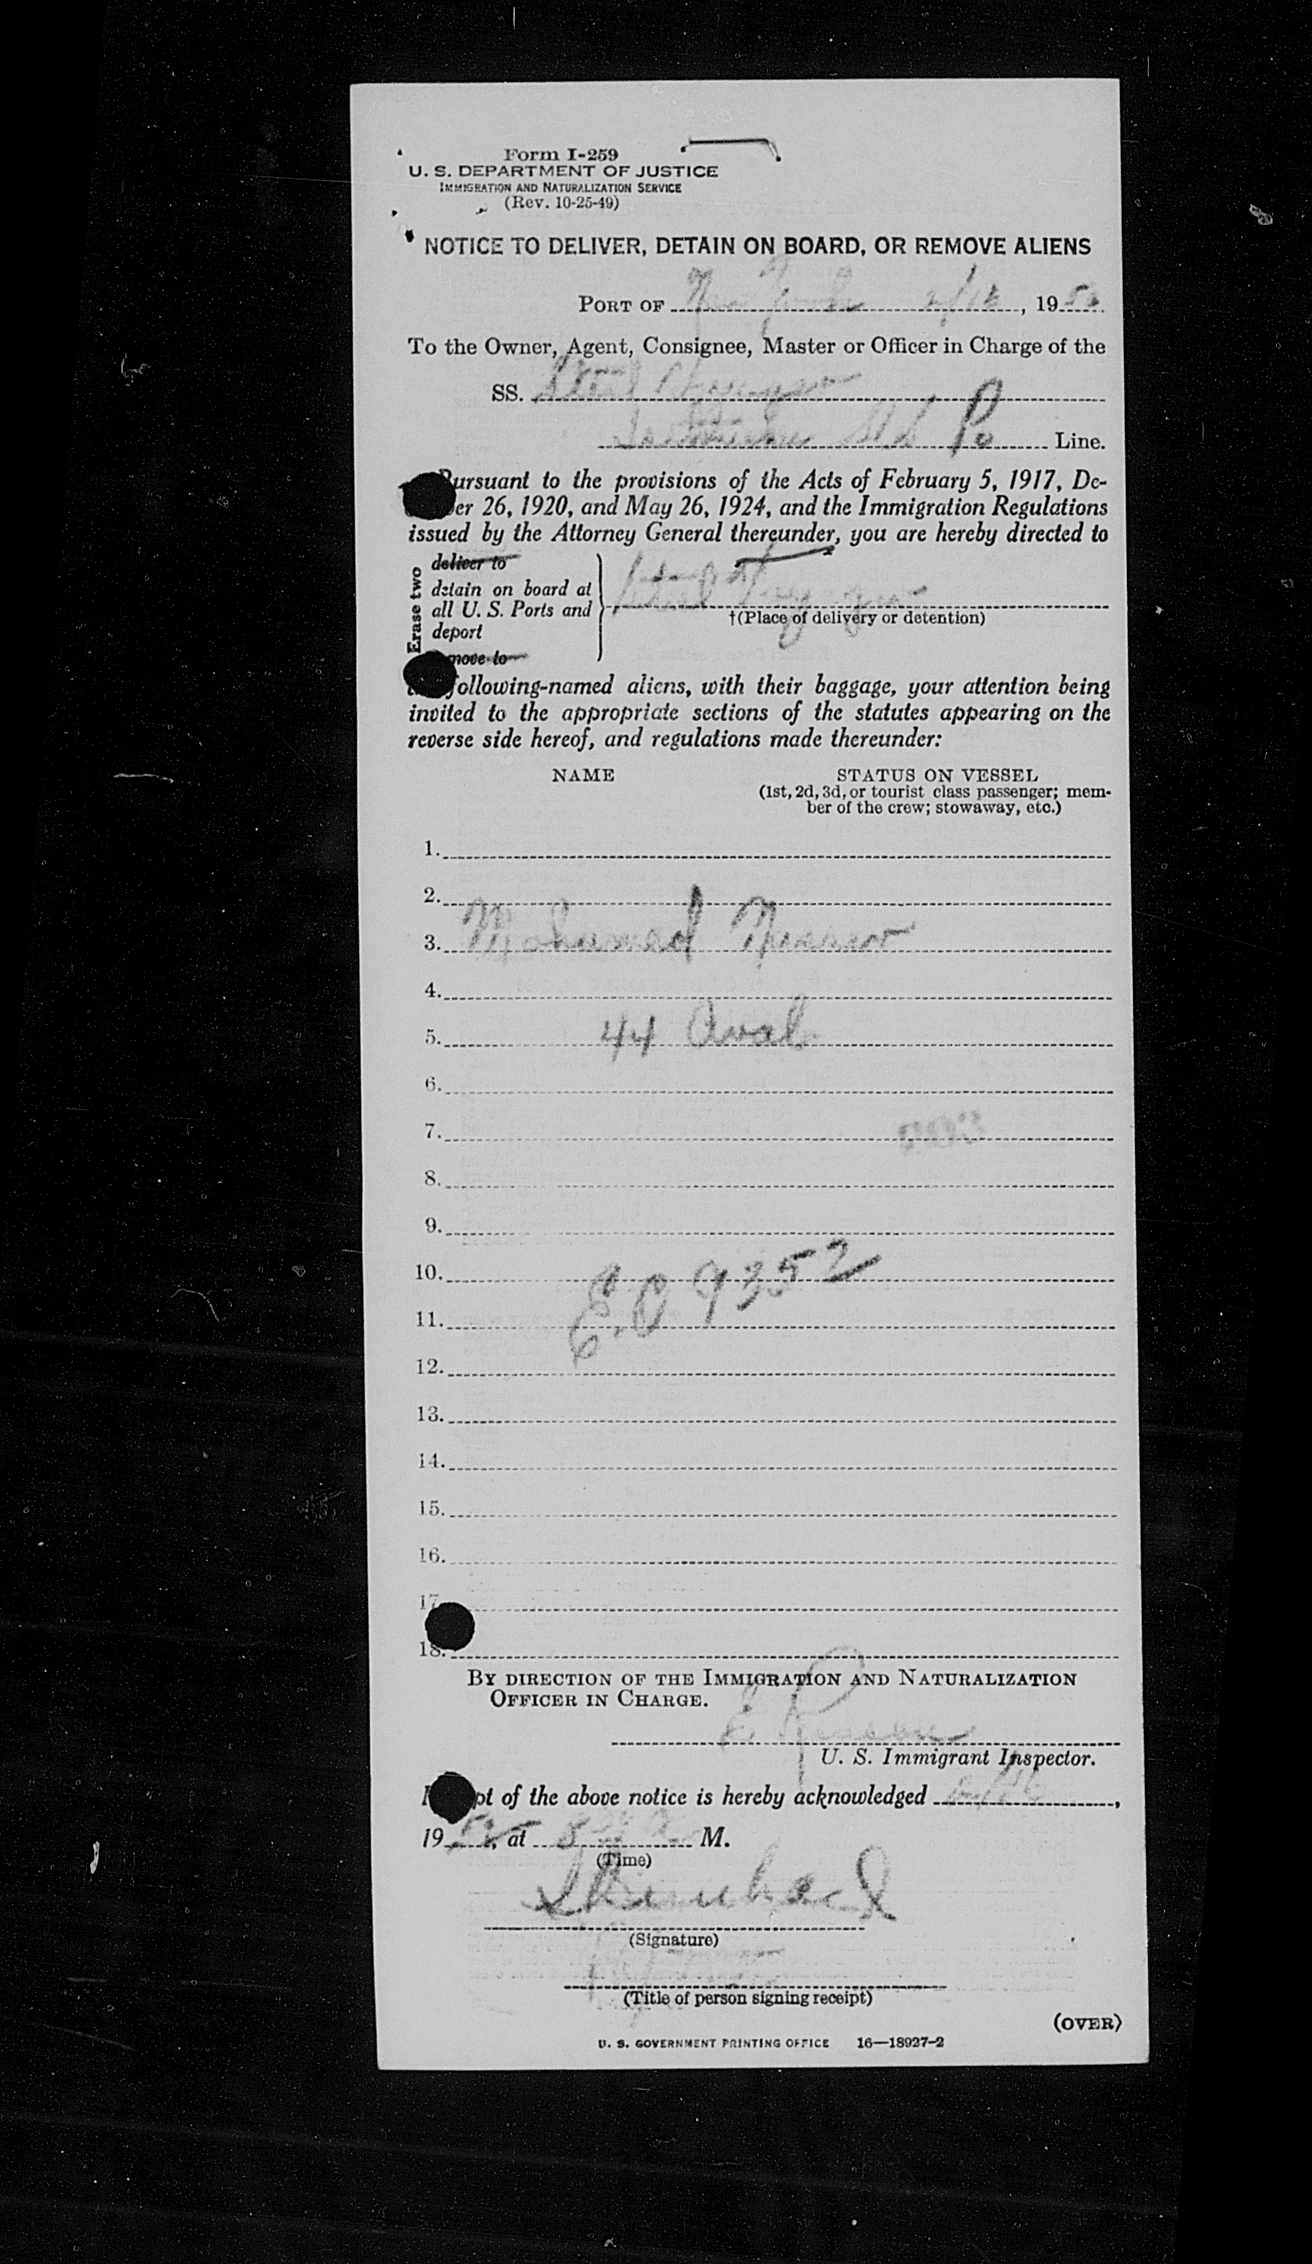 Form I-259
U. S. DEPARTMENT OF JUSTICE
IMMIGRATION AND NATURALIZATION SERVICE
(Rev. 10-25-49)
NOTICE TO DELIVER, DETAIN ON BOARD, OR REMOVE ALIENS
PORT OF New York 2/16, 1952
To the Owner, Agent, Consignee, Master or Officer in Charge of the
SS. Steel Voyager
Isthmian S/S Co Line.
Pursuant to the provisions of the Acts of February 5, 1917, De-
ber 26, 1920, and May 26, 1924, and the Immigration Regulations
issued by the Attorney General thereunder, you are hereby directed to
Erase two
deliver to
detain on board at
all U. S. Ports and
deport
move to
Steel Voyager
†(Place of delivery or detention)
following-named aliens, with their baggage, your attention being
invited to the appropriate sections of the statutes appearing on the
reverse side hereof, and regulations made thereunder:
NAME STATUS ON VESSEL
(1st, 2d, 3d, or tourist class passenger; mem-
ber of the crew; stowaway, etc.)
1.
2.
3. Mohamed
4.
5. 44
6.
7.
8.
9.
10. 9352
11.
12.
13.
14.
15.
16.
17.
18.
BY DIRECTION OF THE IMMIGRATION AND NATURALIZATION
OFFICER IN CHARGE.
E.
U. S. Immigrant Inspector.
pt of the above notice is hereby acknowledged 2/16,
1952, at M.
(Time)
(Signature)
(Title of person signing receipt)
(OVER)
U. S. GOVERNMENT PRINTING OFFICE 16—18927-2